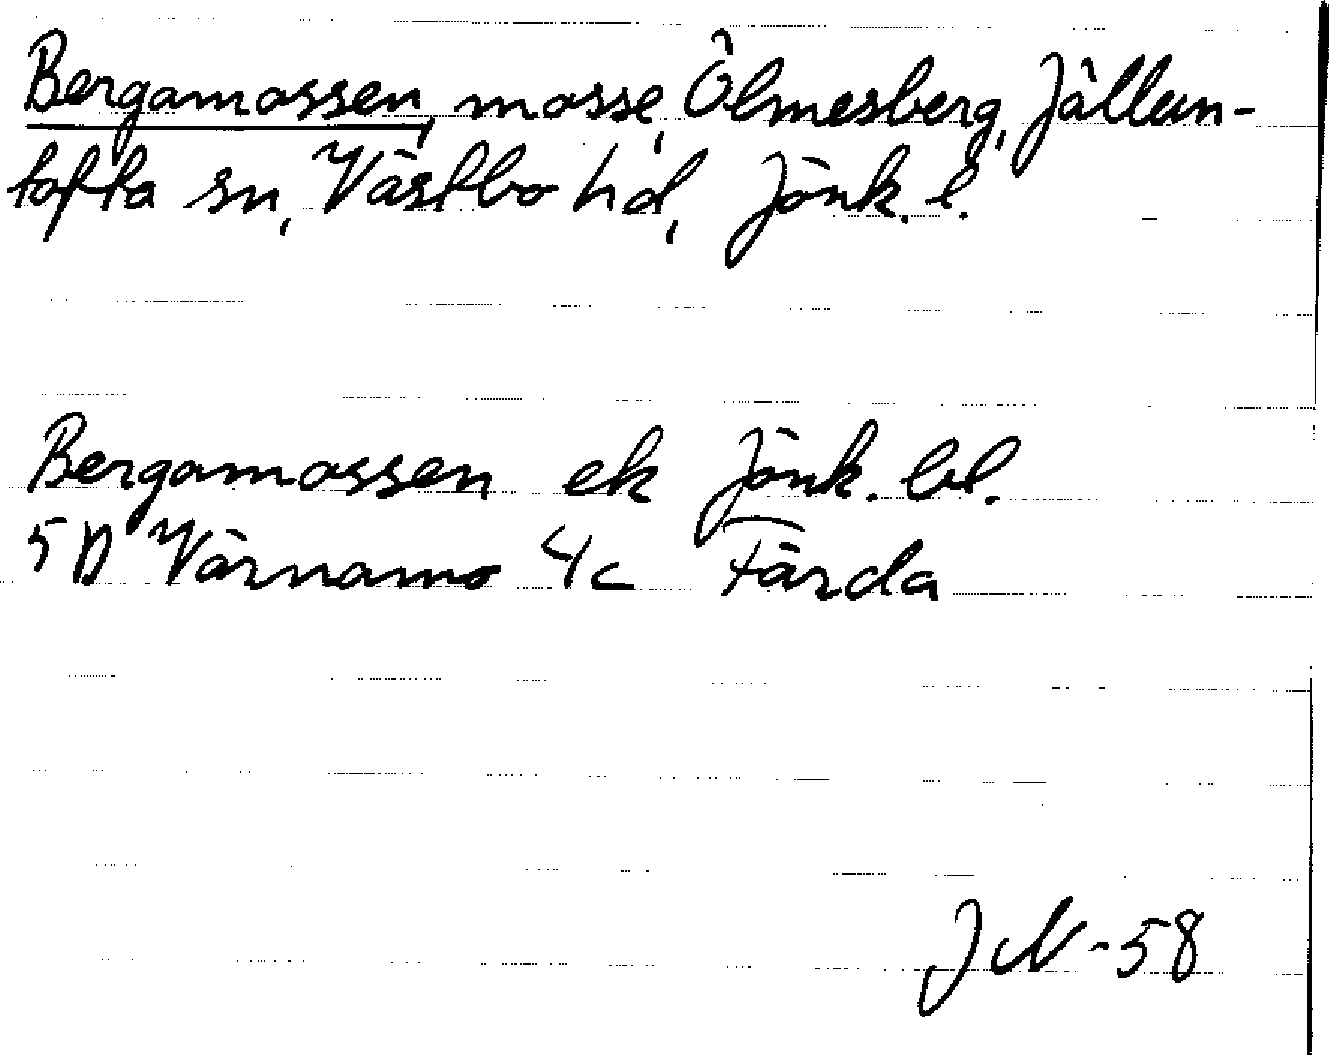 Bergamossen, mosse, Ölmesberg, Jällun-
tofta sn, Västbo hd, Jönk. l.
Bergamossen ek Jönk. lbl.
5D Värnamo 4c Färda
JN-58